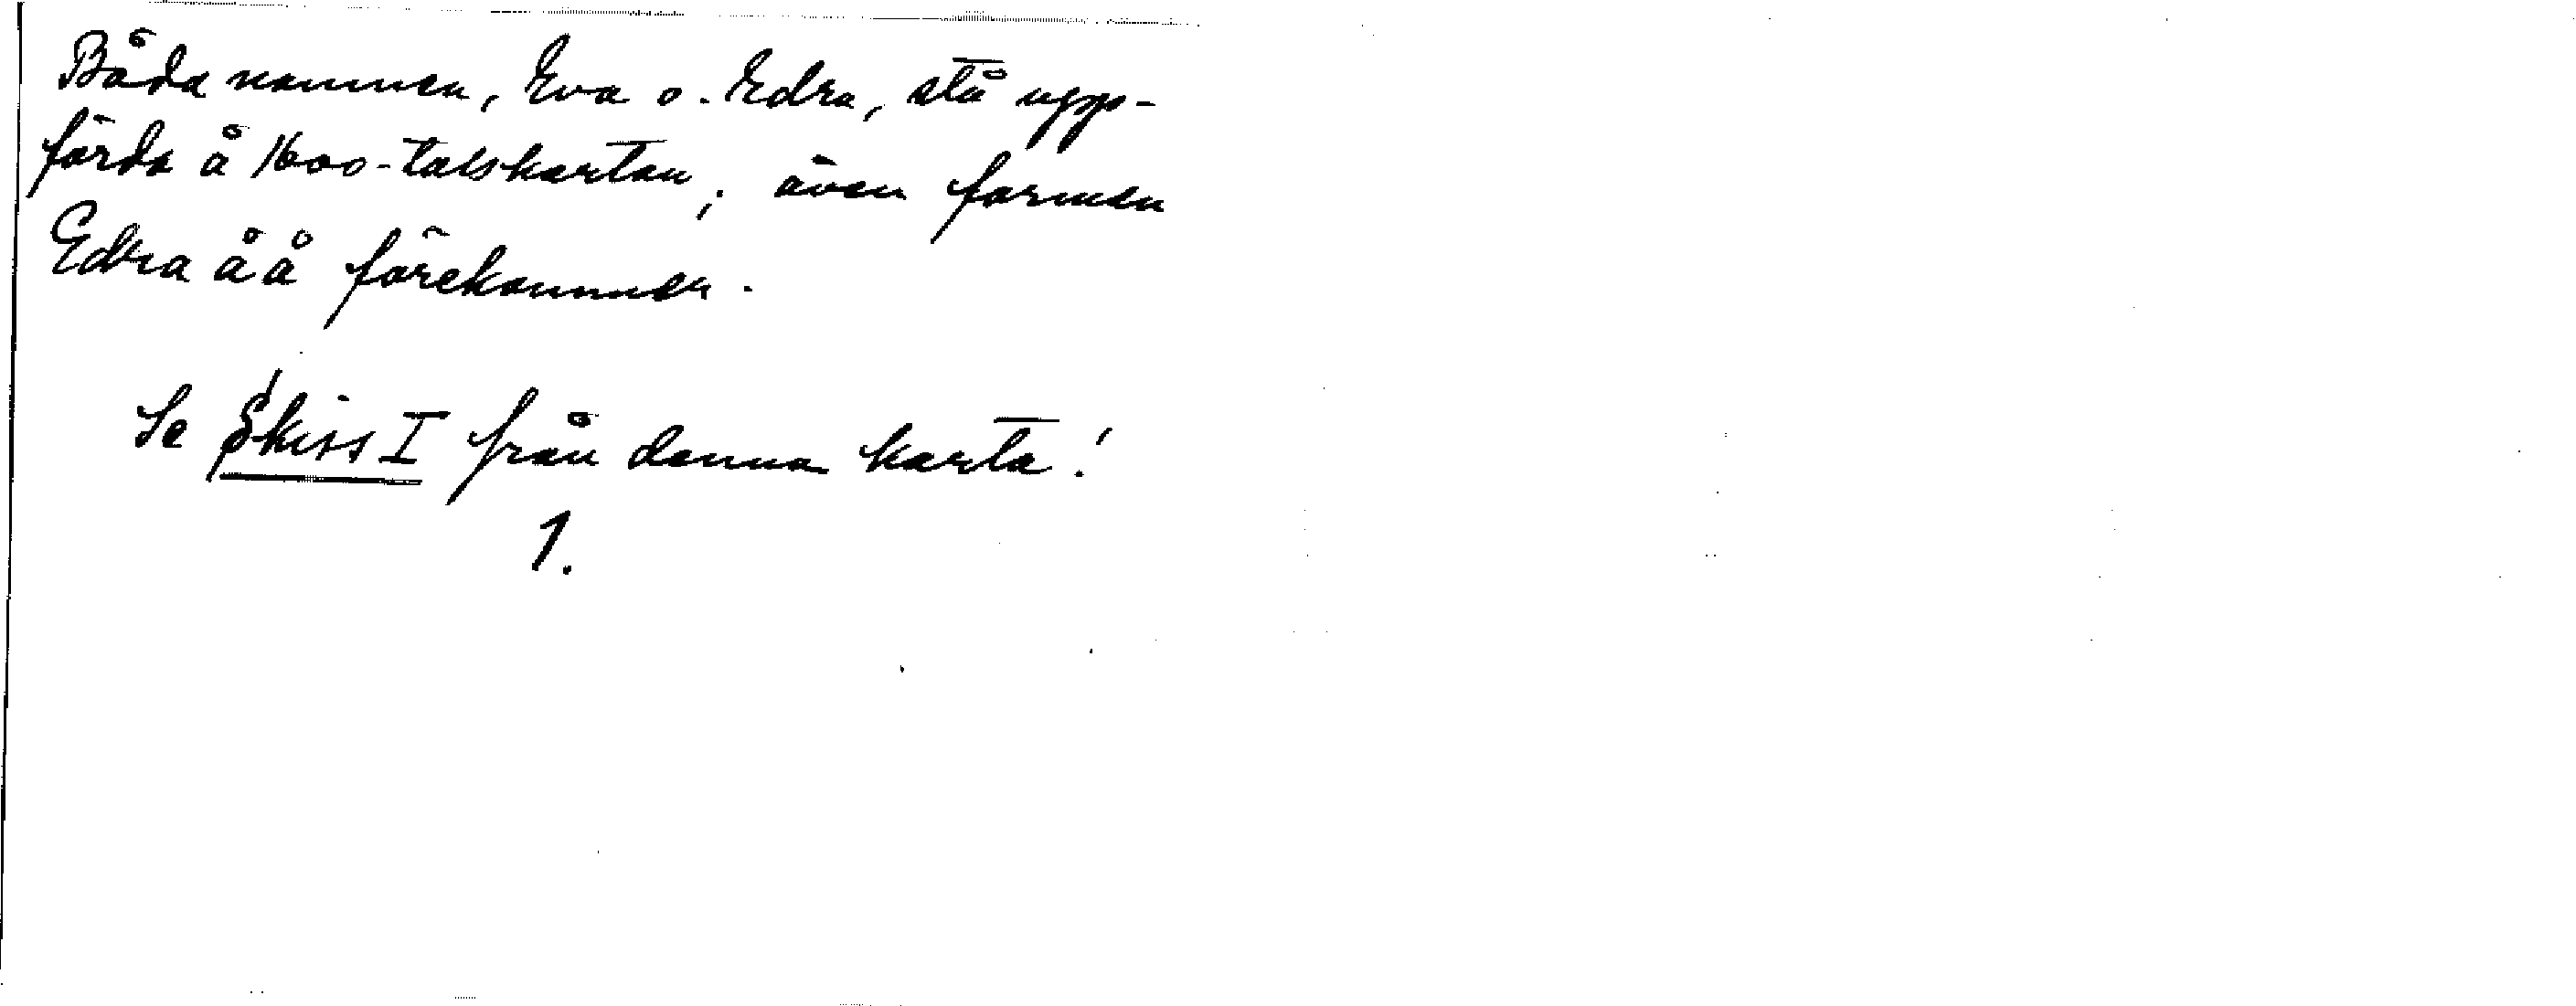 Båda namnen, Eva o. Edra, stå upp-
förda å 1600-talskartan; även formen
Edra åå förekommer.
Se Skiss I från denna karta!
1.